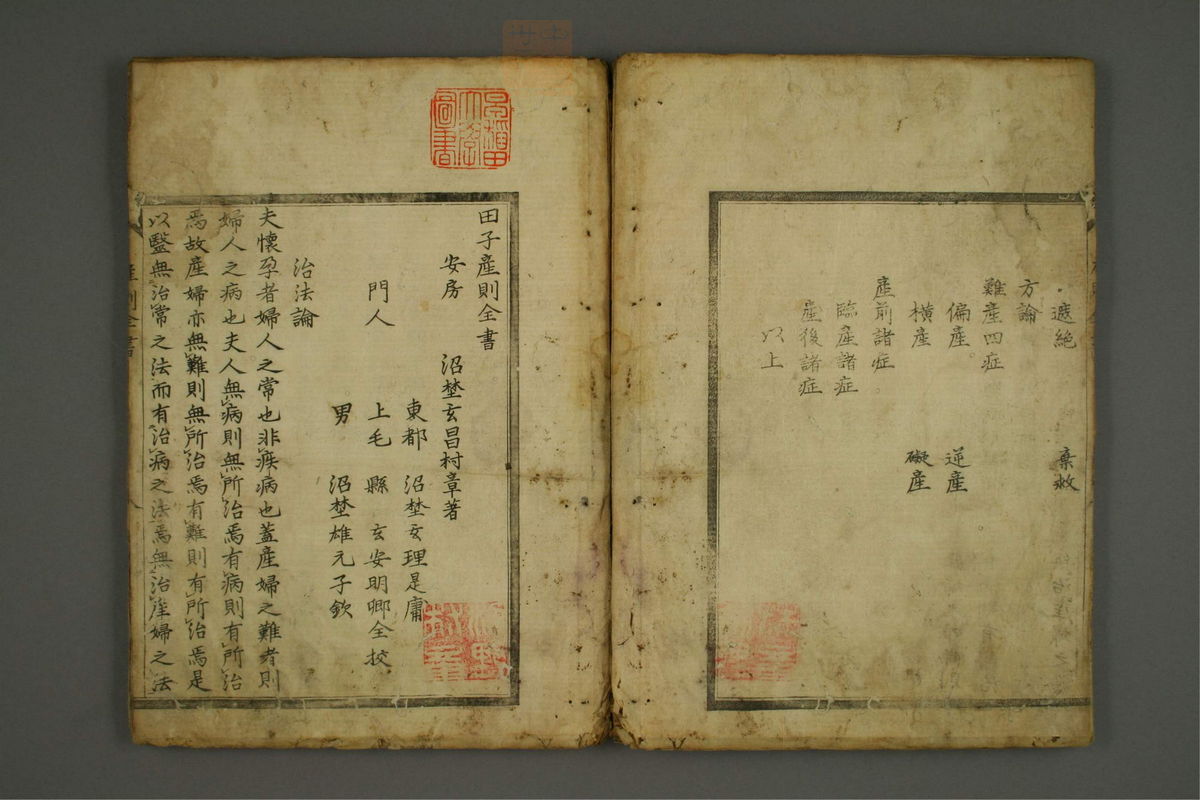 遮絶 棄救
方論
難産四症
偏産。 逆産
横産 礙産
産前諸症
臨産諸症
産後諸症
以上
早稲田大学図書
田子産則全書
安房 沼埜玄昌村章著
東都 沼埜玄理是庸
門人 上毛 縣 玄安明卿仝挍
男 沼埜雄元子欽
治法論
夫懐孕者婦人之常也非疾病也蓋産婦之難者則
婦人之病也夫人無病則無所治焉有病則有所治
焉故産婦亦無難則無所治焉有難則有所治焉是
以毉無治常之法而有治病之法焉無治産婦之法
産則全書